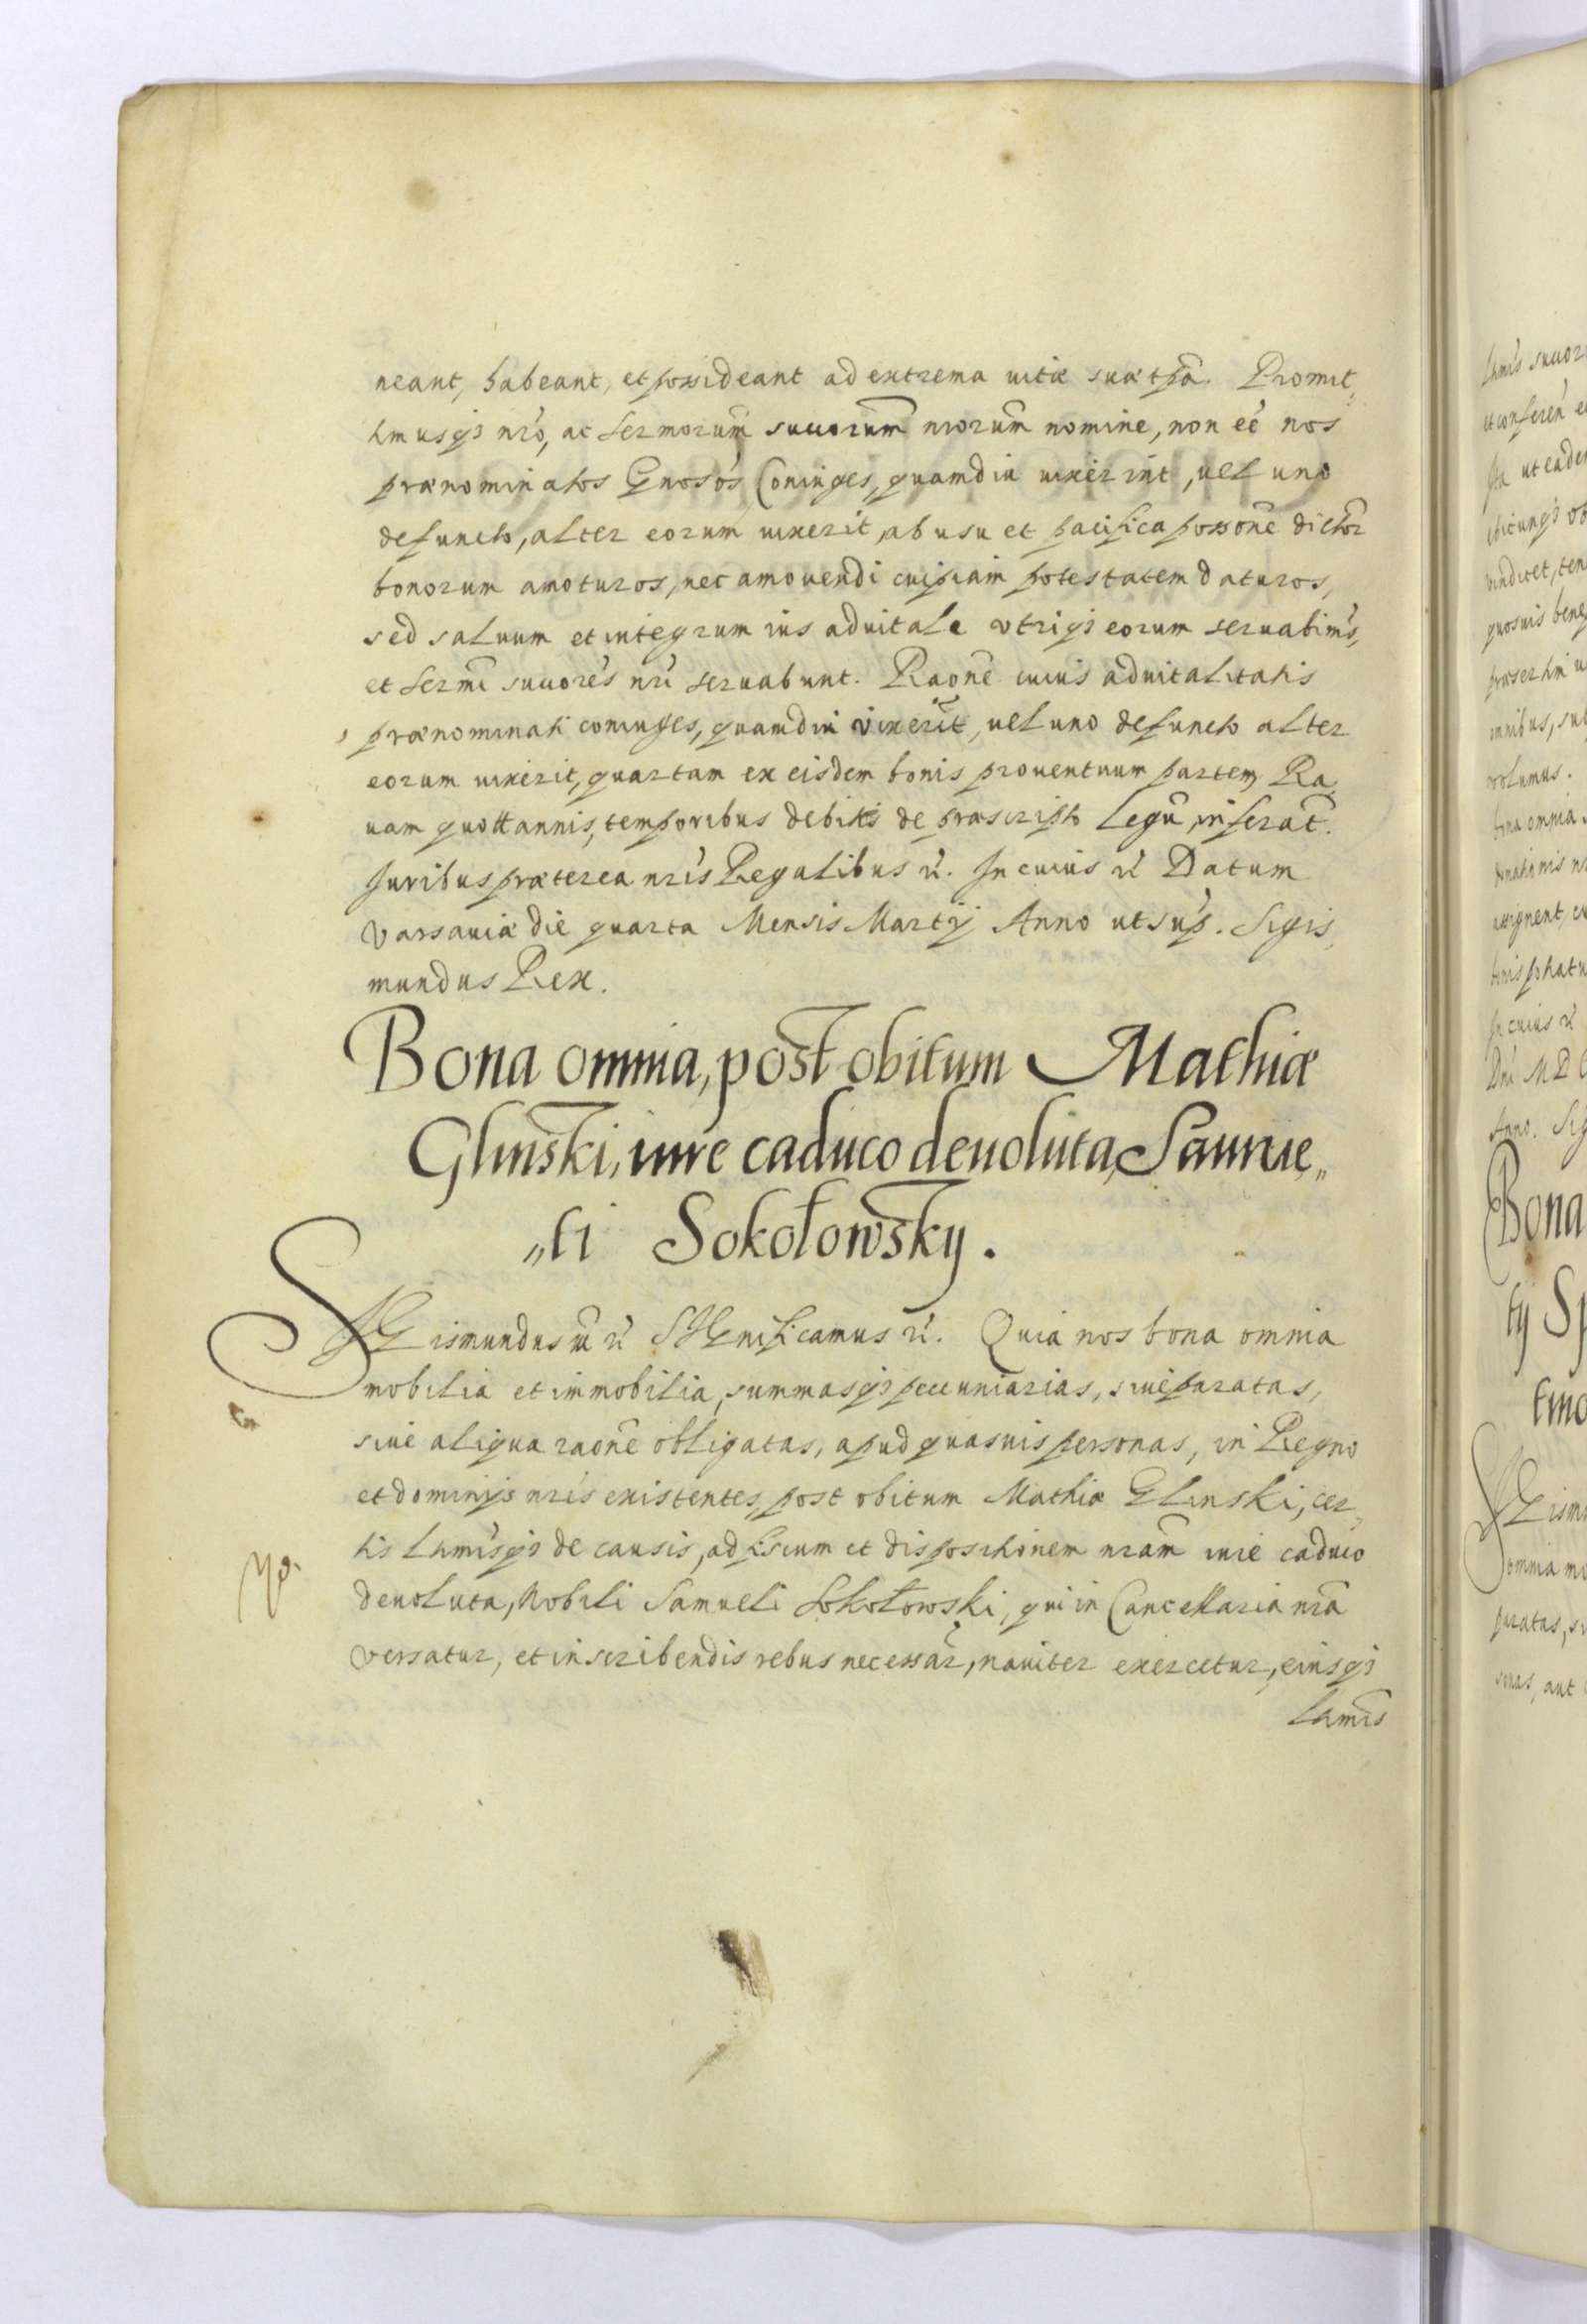 neant, habeant, et possideant ad extrema vitæ suæ tpã. Promit„
timusq₃ nr̃o, ac Sermorum̃ succorum̃ nrorum̃ nomine, non eẽ nos
prænominatos Gnosos̃ Coniuges, quamdiu vixerint, uel uno
defuncto, alter eorum vixerit, ab usu et pacifica possonẽ dictor̃
bonorum amoturos, nec amouendi cuipiam potestatem daturos,
sed saluum et integrum ius aduitale vtriq₃ eorum seruabim̃s,
et Serm̃i succorẽs nr̃i seruabunt. Raonẽ cuius aduitalitatis
prænominati coniuges, quamdiu vixerĩt, uel uno defuncto alter
eorum vixerit, quartam ex eisdem bonis prouentuum partem Ra„
uam quottannis, temporibus debitis de præscripto Legũ, inferãt.
Juribus præterea nr̃is Regalibus &. In cuius & Datum
Varsauiæ die quarta Mensis Martij Anno ut sup̃. Sigis„
mundus Rex.
Bona omnia, post obitum Mathiæ
Glinski, iure caduco deuoluta, Samue„
„li Sokołowsky.
SIGismundus m̃ & SIGnificamus &. Quia nos bona omnia
mobilia et immobilia, summasq₃ pecuniarias, siue paratas,
siue aliqua raonẽ obligatas, apud quasuis personas, in Regno
et dominijs nr̃is existentes, post obitum Mathiæ Glinski, cer„
tis Ltimis̃q₃ de causis, ad fiscum et dispositionem nram̃ iure caduco
deuoluta, Nobili Samueli Sokołowski, qui in Cancellaria nrã
versatur, et in scribendis rebus necessar̃, nauiter exercetur, eiusq₃
Ltimis̃